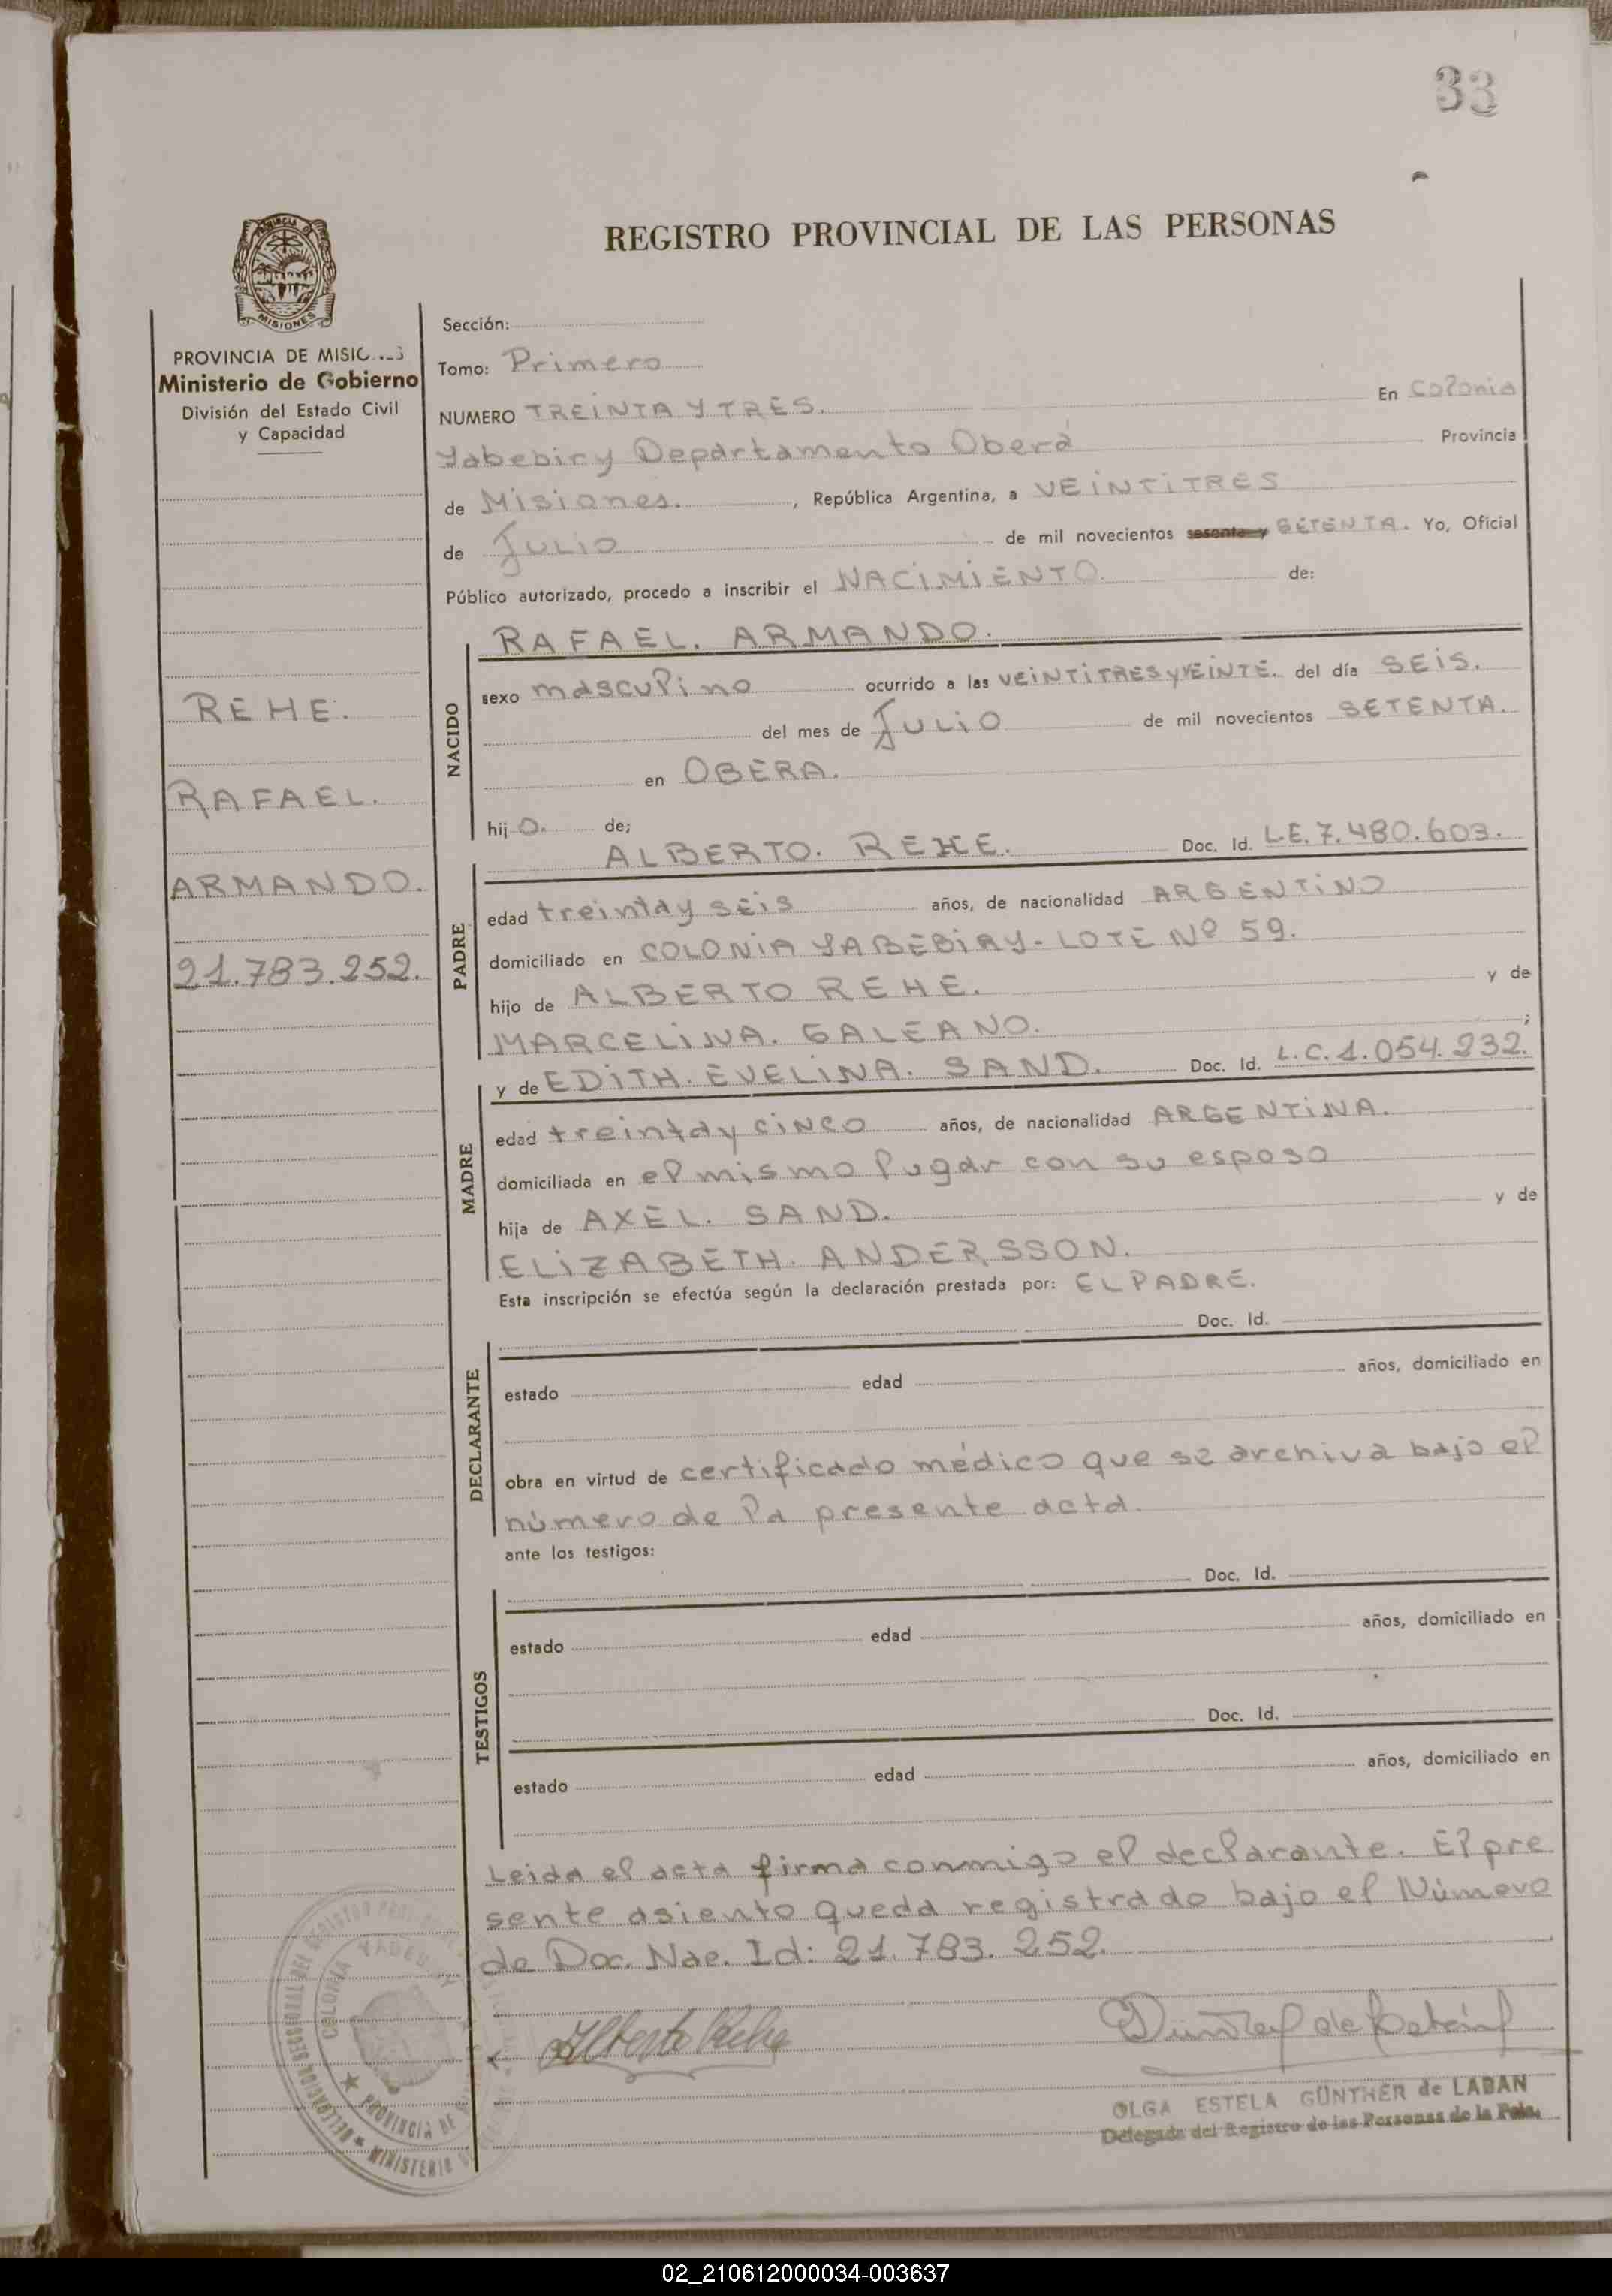 33
REGISTRO PROVINCIAL DE LAS PERSONAS
PROVINCIA DE MISIONES
MISIONES
PROVINCIA DE MISIC...S
Ministerio de Gobierno
División del Estado Civil
y Capacidad
REHE.
RAFAEL.
ARMANDO.
21.783.252.
Sección:
Tomo: Primero
NUMERO TREINTA Y TRES. En Colonia
Yabebiry Departamento Oberá Provincia
de Misiones. , República Argentina, a VEINTITRES
de JULIO de mil novecientos sesenta y SETENTA. Yo, Oficial
Público autorizado, procedo a inscribir el NACIMIENTO. de:
NACIDO
RAFAEL. ARMANDO.
sexo masculino ocurrido a las VEINTITRES y VEINTE. del día SEIS.
del mes de JULIO de mil novecientos SETENTA.
en OBERA.
hij o. de;
PADRE
ALBERTO. REHE. Doc. Id. L.E. 7.480.603.
edad treinta y seis años, de nacionalidad ARGENTINO
domiciliado en COLONIA YABEBIRY - LOTE Nº 59.
hijo de ALBERTO REHE. y de
MARCELINA. GALEANO. ;
MADRE
y de EDITH. EVELINA. SAND. Doc. Id. L.C. 1.054.232.
edad treinta y cinco años, de nacionalidad ARGENTINA.
domiciliada en el mismo lugar con su esposo
hija de AXEL. SAND. y de
ELIZABETH. ANDERSSON.
Esta inscripción se efectúa según la declaración prestada por: EL PADRE.
DECLARANTE
Doc. Id.
estado edad años, domiciliado en
obra en virtud de certificado médico que se archiva bajo el
número de la presente acta.
ante los testigos:
TESTIGOS
Doc. Id.
estado edad años, domiciliado en
Doc. Id.
estado edad años, domiciliado en
Leida el acta firma conmigo el declarante. El pre
sente asiento queda registrado bajo el Número
de Doc. Nac. Id: 21.783.252.
Alberto Rehe
OLGA ESTELA GÜNTHER de LABAN
Delegada del Registro de las Personas de la Pcia.
COLONIA YABEBIRY
PROVINCIA DE
MINISTERIO
02_210612000034-003637